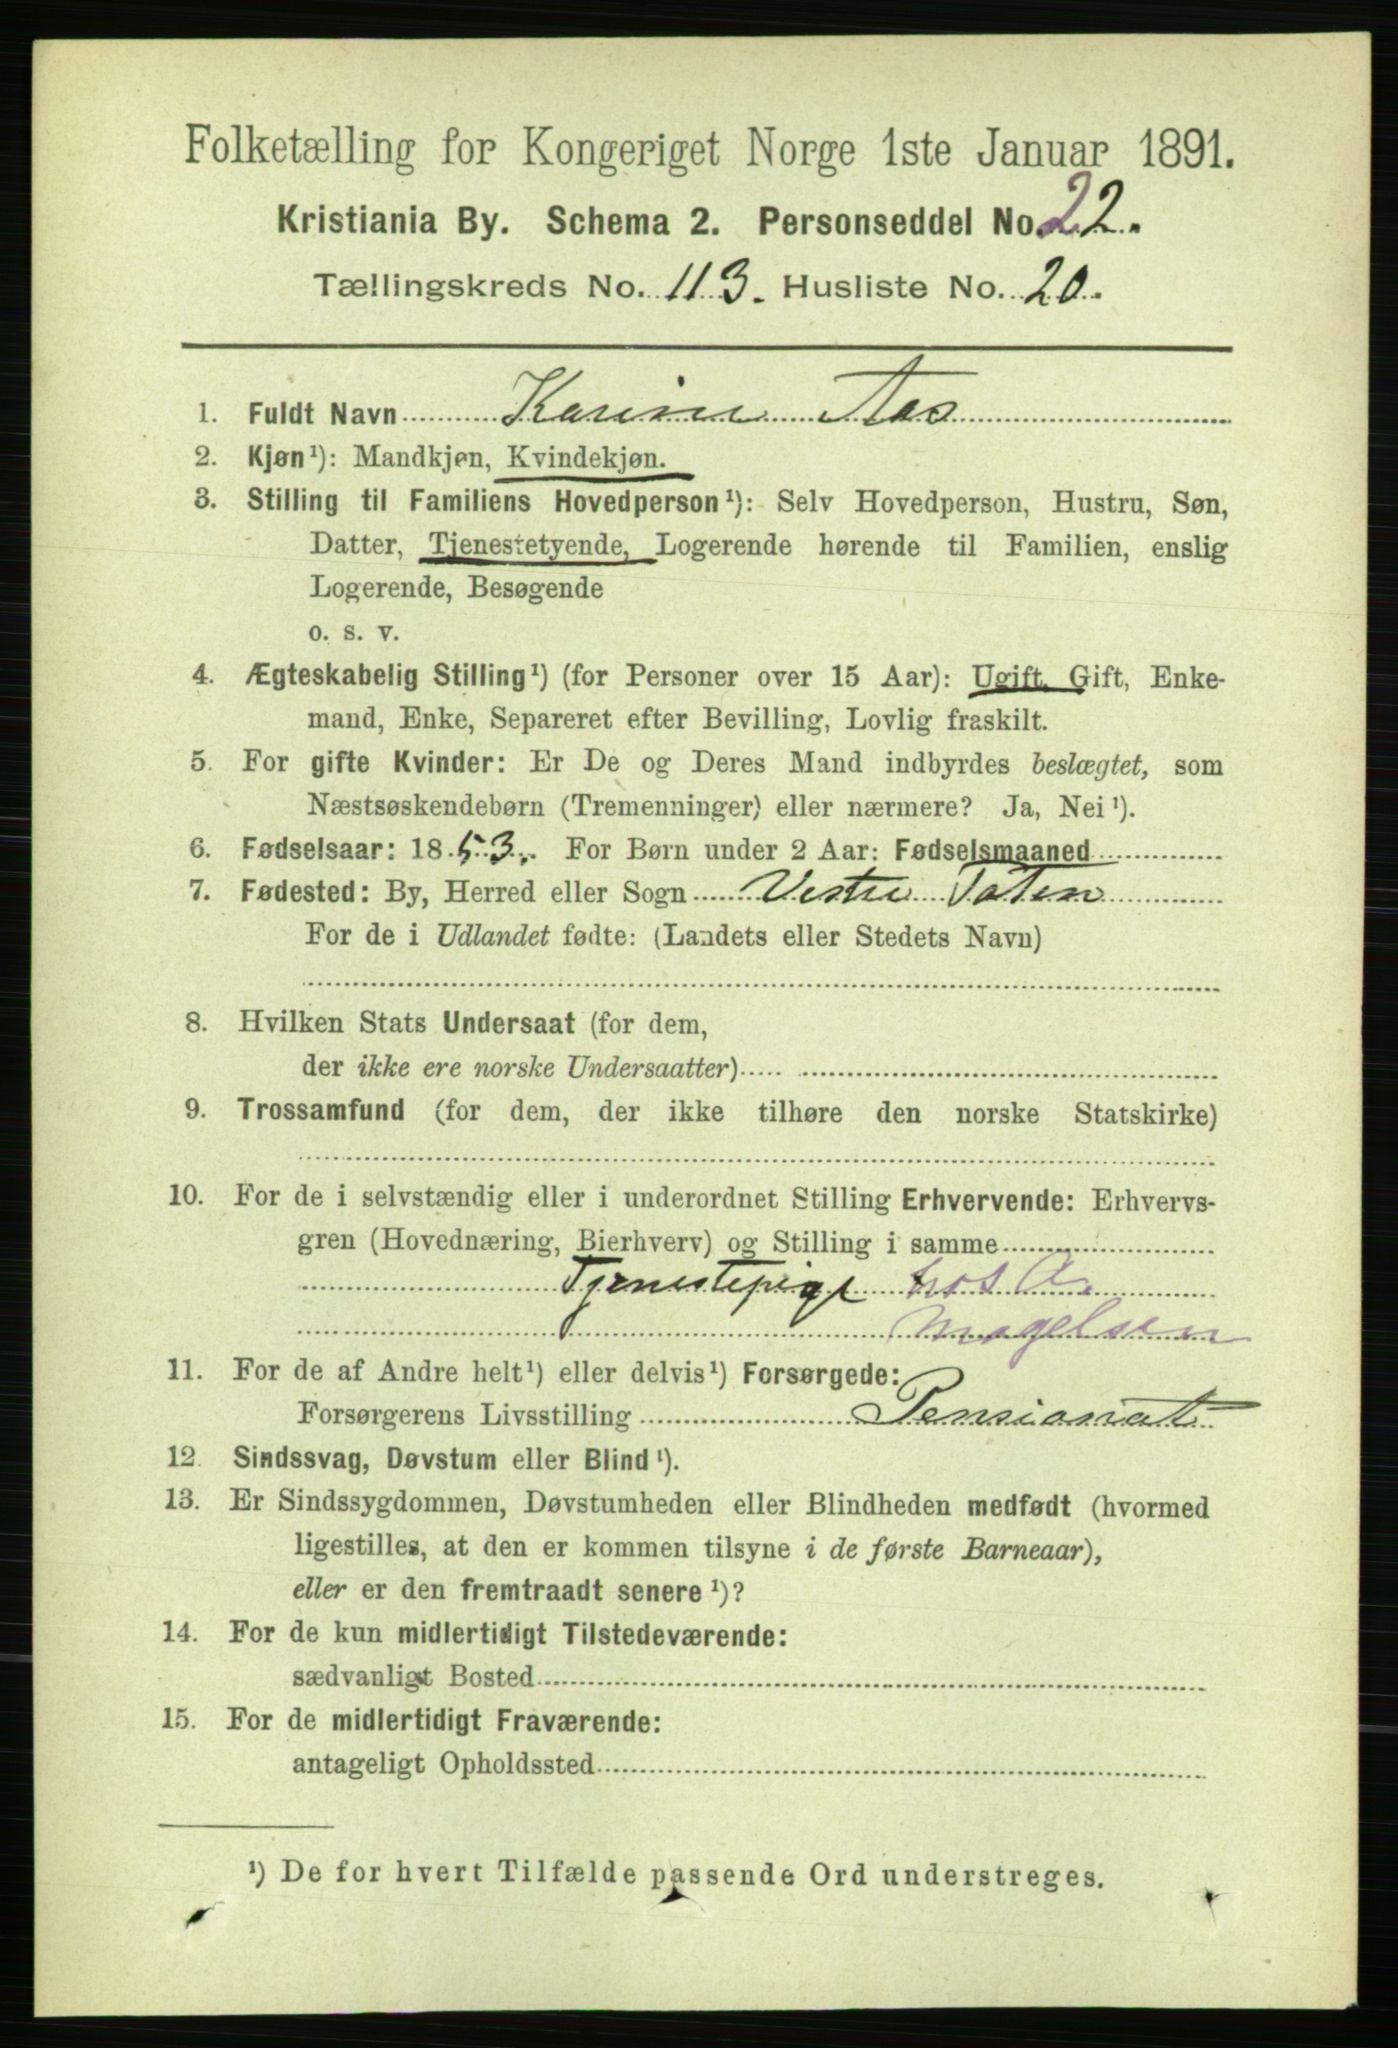 Folketælling for Kongeriget Norge 1ste Januar 1891.
Kristiania By. Schema 2. Personseddel No. 22.
Tællingskreds No. 113. Husliste No. 20.
1. Fuldt Navn Karine Aas
2. Kjøn¹): Mandkjøn, Kvindekjøn.
3. Stilling til Familiens Hovedperson¹): Selv Hovedperson, Hustru, Søn,
Datter, Tjenestetyende, Logerende hørende til Familien, enslig
Logerende, Besøgende
o. s. v.
4. Ægteskabelig Stilling¹) (for Personer over 15 Aar): Ugift, Gift, Enke-
mand, Enke, Separeret efter Bevilling, Lovlig fraskilt.
5. For gifte Kvinder: Er De og Deres Mand indbyrdes beslægtet, som
Næstsøskendebørn (Tremenninger) eller nærmere? Ja, Nei¹).
6. Fødselsaar: 1853. For Børn under 2 Aar: Fødselsmaaned
7. Fødested: By, Herred eller Sogn Vestre Toten
For de i Udlandet fødte: (Landets eller Stedets Navn)
8. Hvilken Stats Undersaat (for dem,
der ikke ere norske Undersaatter)
9. Trossamfund (for dem, der ikke tilhøre den norske Statskirke)
10. For de i selvstændig eller i underordnet Stilling Erhvervende: Erhvervs-
gren (Hovednæring, Bierhverv) og Stilling i samme
Tjenestepige hos A.
Magelsen
11. For de af Andre helt¹) eller delvis¹) Forsørgede:
Forsørgerens Livsstilling Pensionat
12. Sindssvag, Døvstum eller Blind¹).
13. Er Sindssygdommen, Døvstumheden eller Blindheden medfødt (hvormed
ligestilles, at den er kommen tilsyne i de første Barneaar),
eller er den fremtraadt senere¹)?
14. For de kun midlertidigt Tilstedeværende:
sædvanligt Bosted
15. For de midlertidigt Fraværende:
antageligt Opholdssted
¹) De for hvert Tilfælde passende Ord understreges.